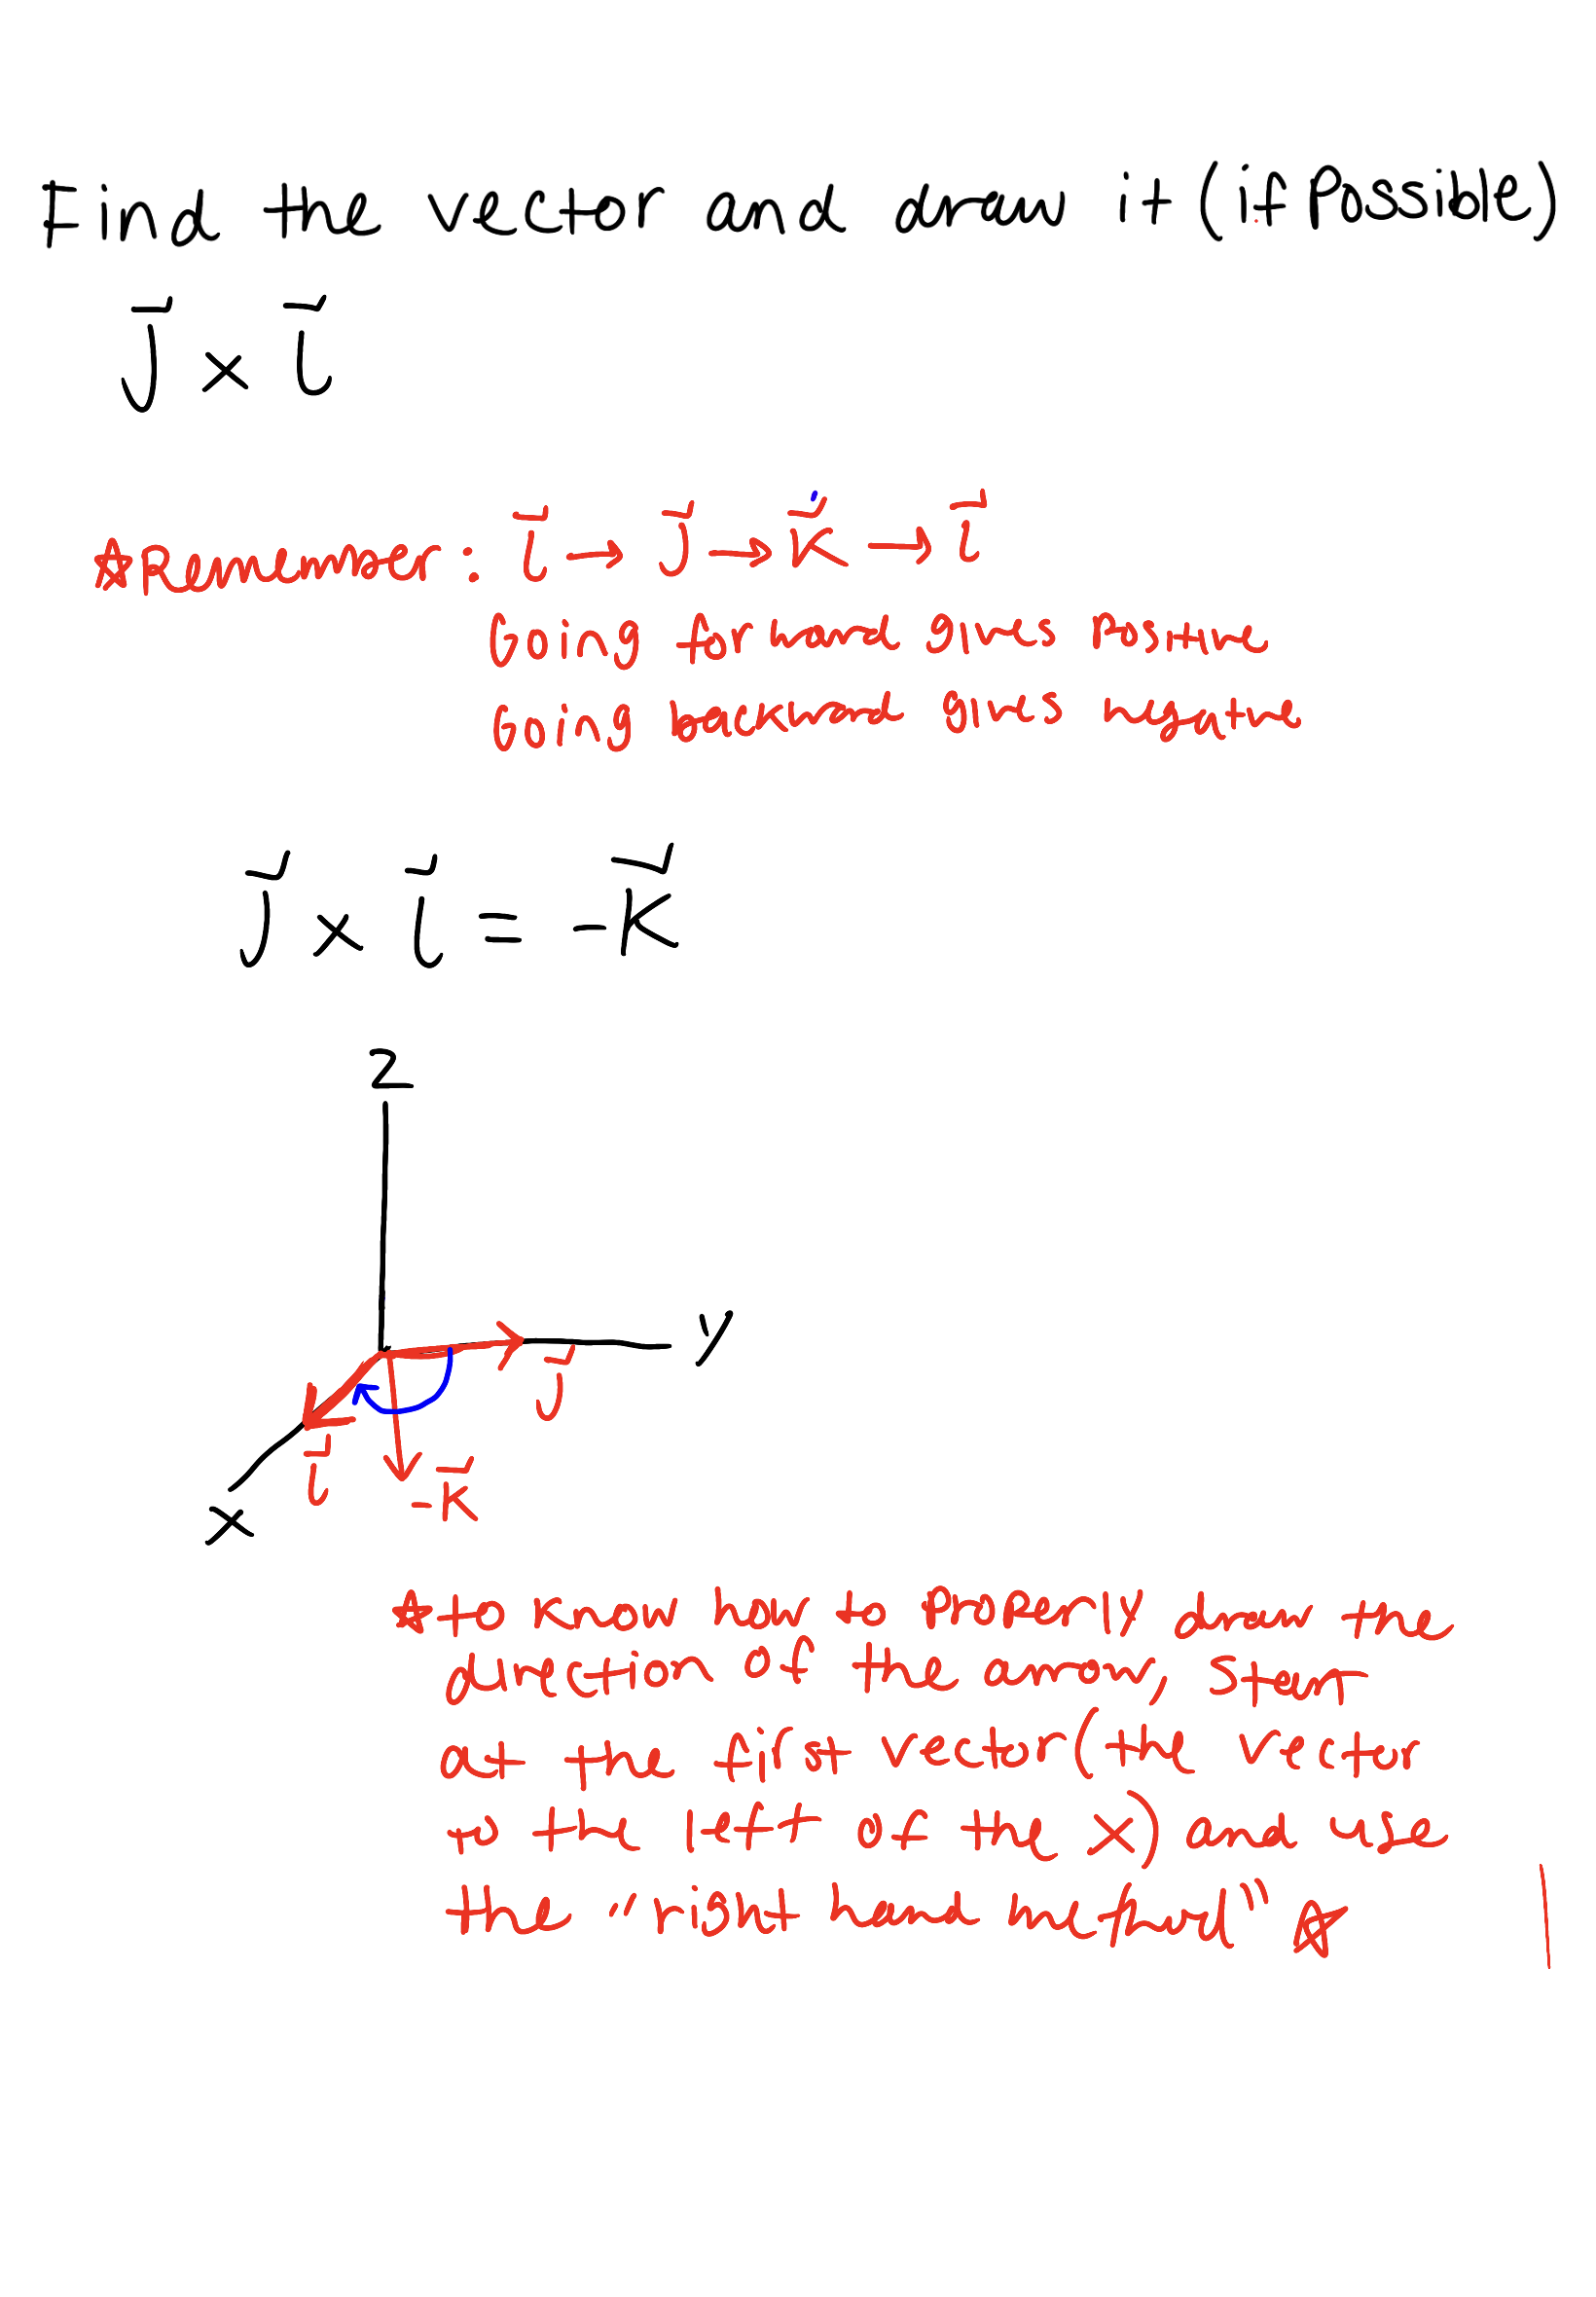 Find the vector and draw it (if Possible)
j⃗ × i⃗
☆Remember: i⃗ → j⃗ → k⃗ → i⃗
Going forward gives Positive
Going backward gives negative
j⃗ × i⃗ = -k⃗
z
y
j⃗
i⃗
-k⃗
x
☆to know how to properly draw the
direction of the arrow, start
at the first vector (the vector
to the left of the X) and use
the "right hand method" ☆